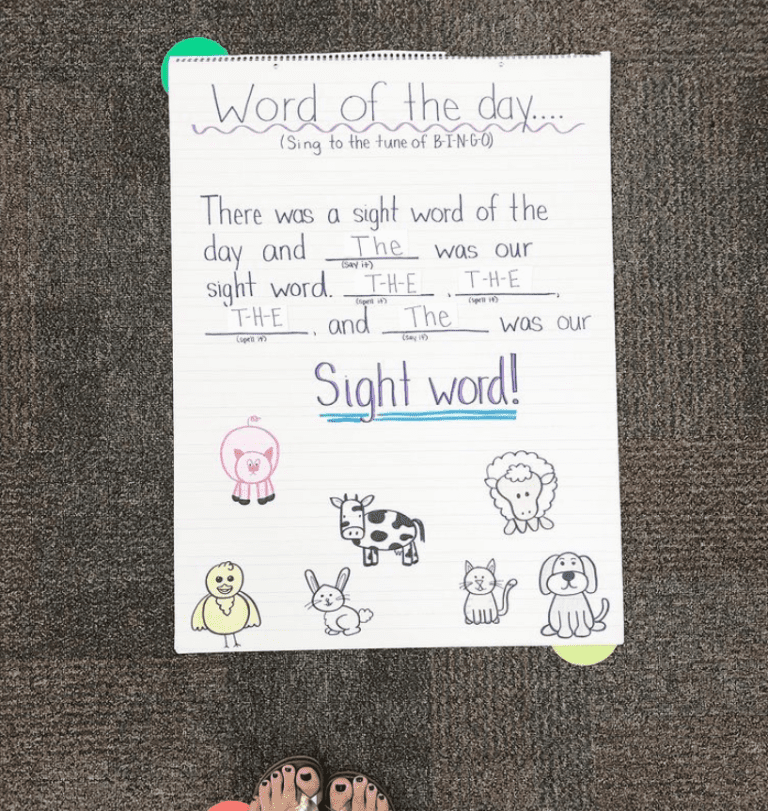 Word of the day....
(Sing to the tune of B-I-N-G-O)
There was a sight word of the
day and The was our
(say it)
sight word. T-H-E , T-H-E ,
(spell it) (spell it)
T-H-E , and The was our
(spell it) (say it)
Sight word!